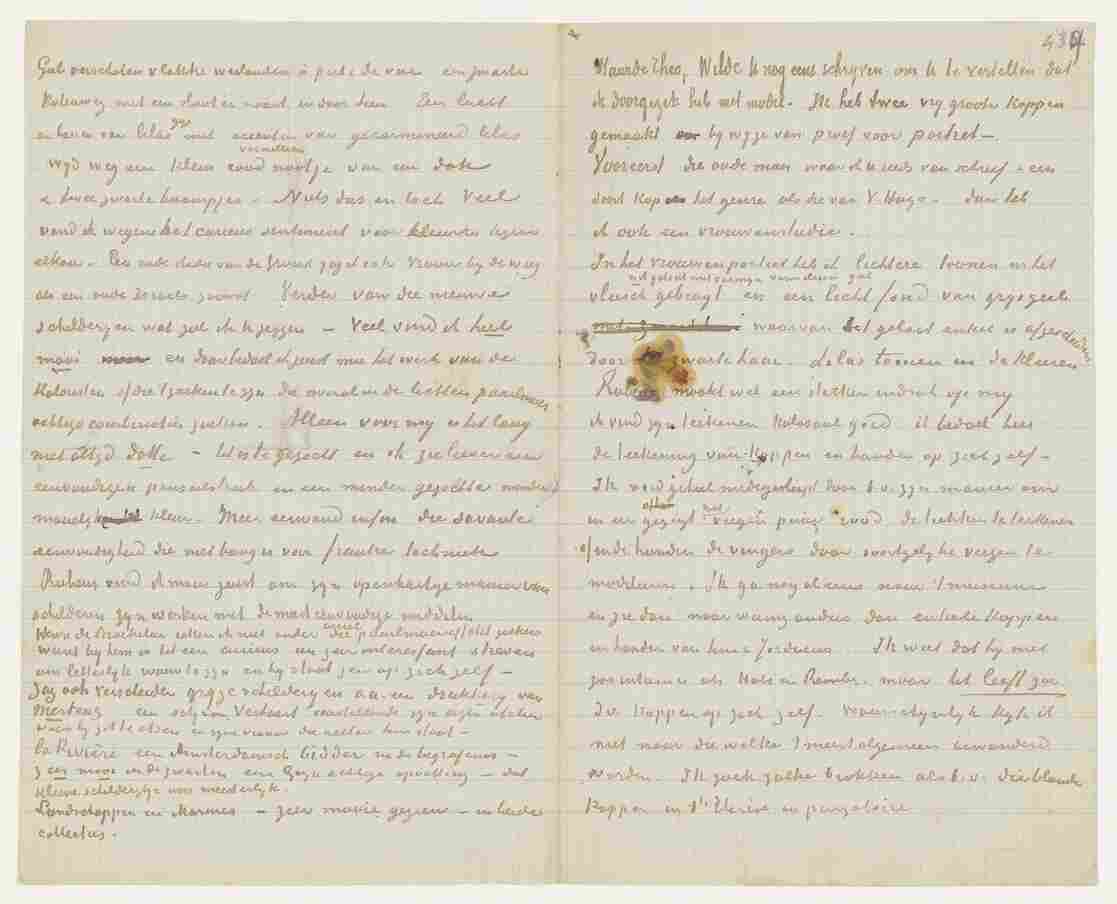 Geel verschoten vlakke weilanden à perte de vue een zwarte
Koleweg met een sloot er naast er door heen Een lucht
er boven van lilas grijs met accenten van
wijd weg een klein rood vermillioen nootje van een dak
& twee zwarte boompjes. Niets dus en toch veel
vond ik wegens het curieus sentiment voor kleuren tegen
elkaar. Een oude studie van de Groux zag ik ook vrouw bij de wieg
als een oude Israels zoowat. Verder van die nieuwe
schilderijen wat zal ik U zeggen – veel vind ik heel
mooi en daar bedoel ik juist mee het werk van de
Koloristen of die trachten te zijn die overal in de lichten paarlmoer
achtige combinaties zoeken. Alleen voor mij is het lang
niet altijd dat – het is te gezocht en ik zie liever een
eenvoudigen penseelstreek en een minder gezochte moeielijke
kleur. Meer eenvoud enfin die savante
eenvoudigheid die niet bang is voor frankre techniek
Rubens vind ik mooi juist om zijn openhartige manier van
schilderen zijn werken met de meest eenvoudige middelen
Henri de Braekeleer reken ik niet onder die overal paarlmoereffekt zoekers
want bij hem is het een curieus en zeer interessant streven
om letterlijk waar te zijn en hij staat zeer op zich zelf –
Zag ook verscheiden grijze schilderijen aa een drukkerij van
Mertens een schijen Verhaert voorstellende zijn eigen atelier
waar hij zit te etsen en zijn vrouw die achter hem staat –
La Rivière een Amsterdamsch bidder na de begrafenis –
zeer mooi in de zwarten een Goya achtige opvatting – dat
kleine schilderijtje was meesterlijk.
Landschappen en Marines – zeer mooie gezien – in beide
collecties.
439
Waarde Theo, Wilde U nog eens schrijven om U te vertellen dat
ik doorgezet heb met model. Ik heb twee vrij groote koppen
gemaakt bij wijze van proef voor portret –
Vooreerst die oude man waar ik U reeds van schreef – een
soort kop in het genre als die van V. Hugo – dan heb
ik ook een vrouwenstudie.
In het vrouwenportret heb ik lichtere toonen in het
vleesch gebragt wit getint met karmijn vermillioen geel en een licht fond van grijsgeel
waarvan het gelaat enkel is afgescheiden
door het zwarte haar. – lilas toonen in de kleeren
Rubens maakt wel een sterken indruk op mij
ik vind zijn teekenen Kolosaal goed ik bedoel hier
de teekening van koppen en handen op zich zelf –
Ik word geheel medegesleept door b.v. zijn manier om
in een gezigt met veegen puur rood de trekken te teekenen
of in de handen de vingers door soortgelijke veegen te
modeleeren. Ik ga nog al eens naar 't museum
en zie dan naar weinig anders dan enkele koppen
en handen van hem & Jordaens. Ik weet dat hij niet
zoo intime als Hals en Rembr. maar het leeft zoo.
Die koppen op zich zelf. Waarschijnlijk kijk ik
niet naar die welke 't meest algemeen bewonderd
worden. Ik zoek zulke brokken als b.v. die blonde
koppen in Ste Thérèse in purgatoire